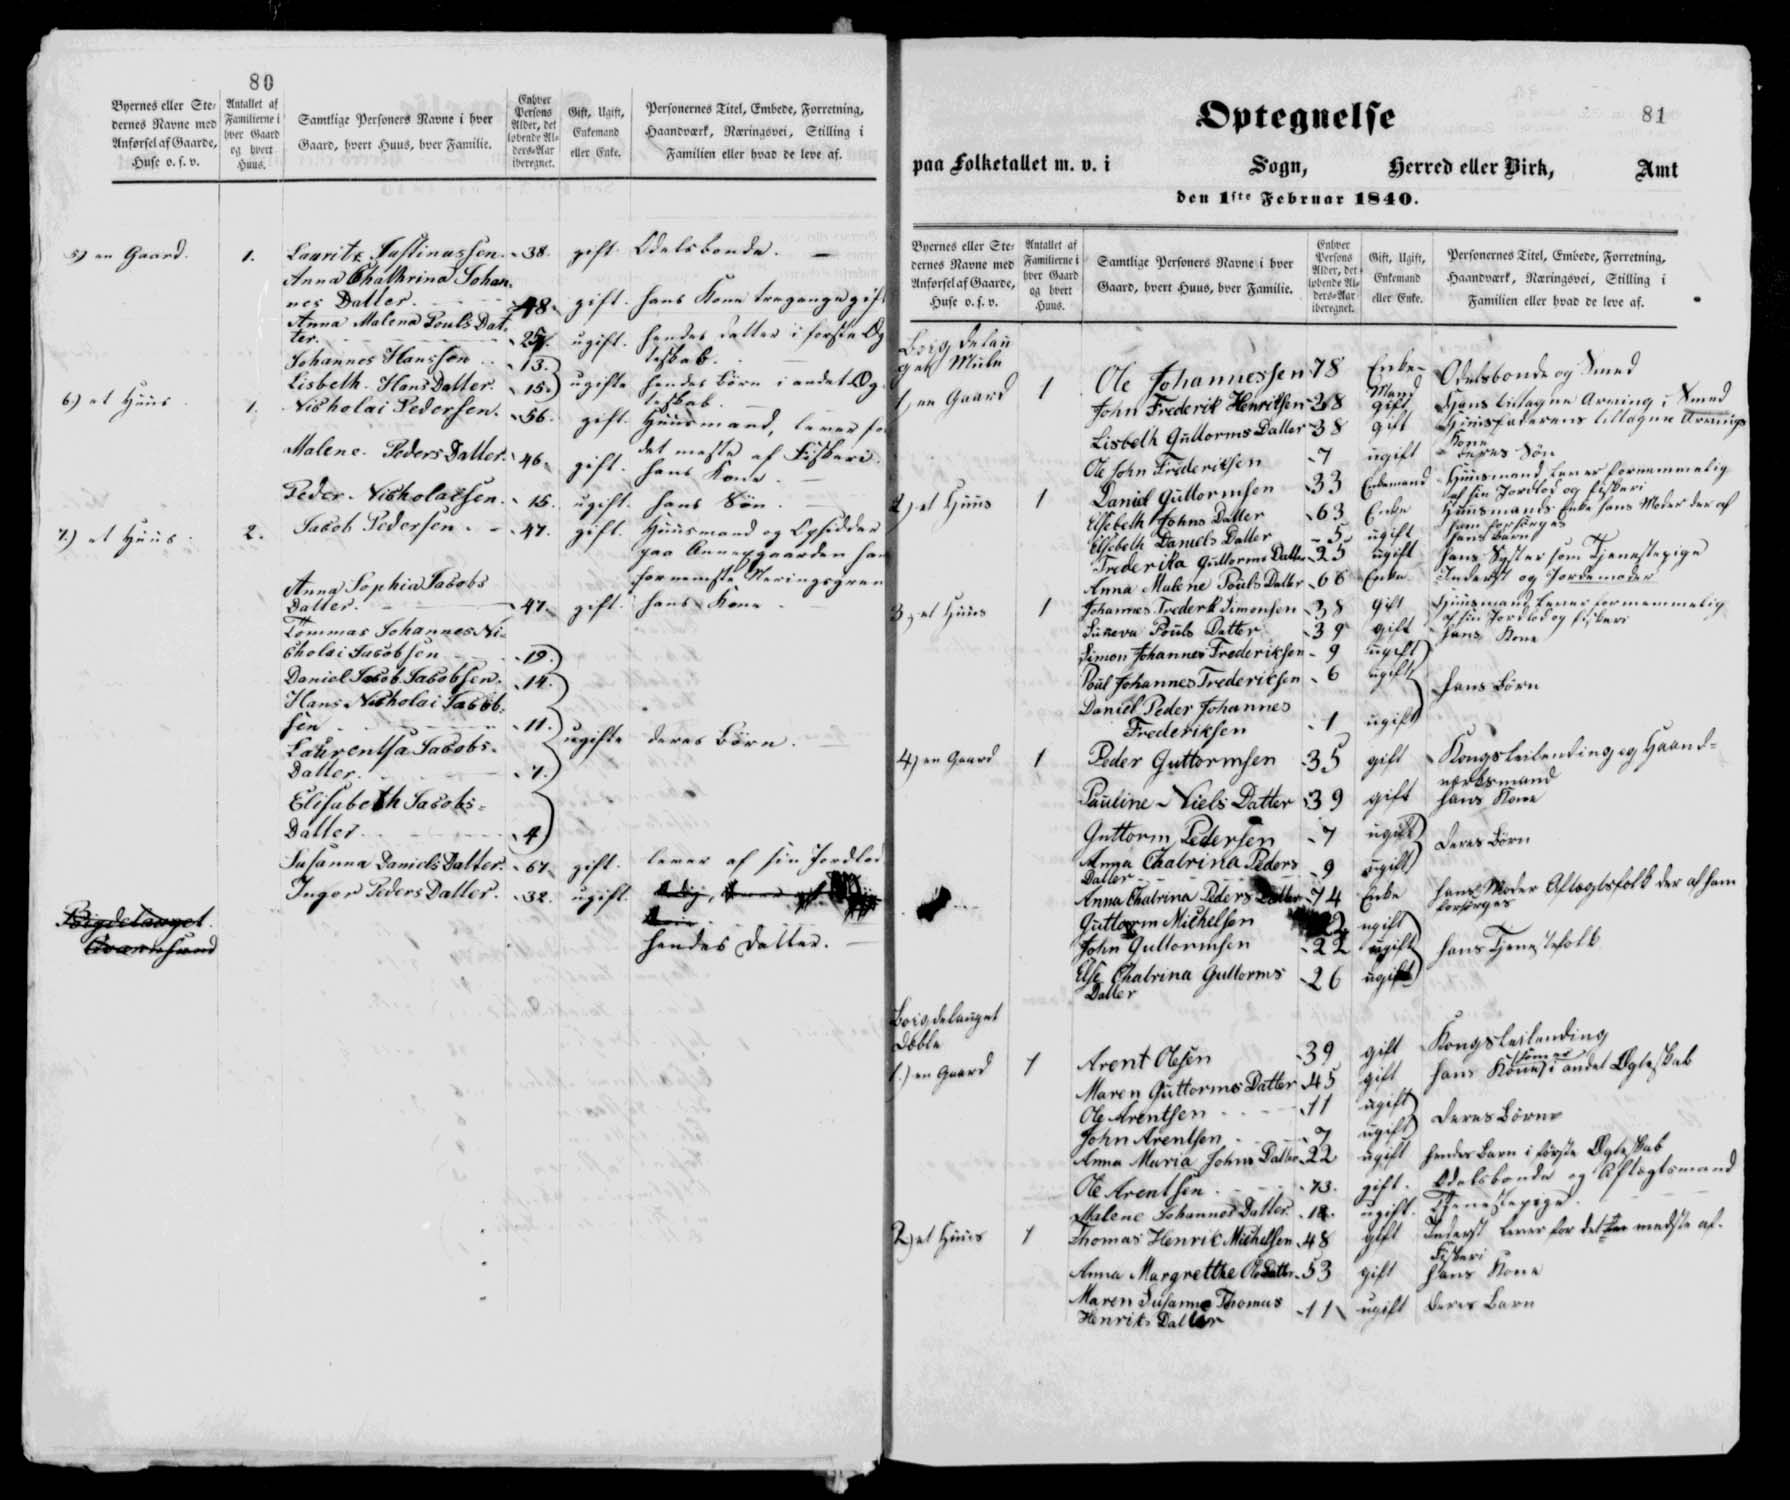 80
Byernes eller Ste-
dernes Navne med
Anførsel af Gaarde,
Huse o. s. v.
Antallet af
Familierne i
hver Gaard
og hvert
Huus.
Samtlige Personers Navne i hver
Gaard, hvert Huus, hver Familie.
Enhver
Persons
Alder, det
løbende Al-
ders-Aar
iberegnet.
Gift, Ugift,
Enkemand
eller Enke.
Personernes Titel, Embede, Forretning,
Haandværk, Næringsvei, Stilling i
Familien eller hvad de leve af.
5) en Gaard. 1. Lauritz Justinussen. 38. gift. Odelsbonde.
Anna Chathrina Johan-
nes Datter. 48. gift. hans Kone tregange gift
Anna Malena Pouls Dat-
ter. 25. ugift. hendes datter i første Æg
teskab.
Johannes Hanssøn 13.
Lisbeth Hans Datter. 15. ugifte hendes Børn i andet Æg-
teskab.
6) et Huus. 1. Nicholai Pedersen. 56. gift. Huusmand, lever for
det meste af Fiskeri.
Malene Peders Datter. 46. gift. hans Kone.
Peder Nicholaisen. 15. ugift. hans Søn.
7.) et Huus. 2. Jacob Pedersen. 47. gift. Huusmand og Opsidder
paa Annexgaarden han
fornemste Neringsgren
Anna Sophia Jacobs
Datter. 47. gift. hans Kone.
Tommas Johannes Ni-
cholai Jacobsen 19.
Daniel Jacob Jacobsen. 14.
Hans Nicholai Jacob-
sen 11.
ugifte deres Børn.
Laurentsa Jacobs-
Datter. 7.
Elisabeth Jacobs-
Datter 4
Susanna Daniels Datter. 67. gift. lever af sin Jordlod
Inger Peders Datter. 32. ugift.
hendes datter.
Bigdelauget
81
Optegnelse
paa Folketallet m. v. i Sogn, Herred eller Birk, Amt
den 1ste Februar 1840.
Byernes eller Ste-
dernes Navne med
Anførsel af Gaarde,
Huse o. s. v.
Antallet af
Familierne i
hver Gaard
og hvert
Huus.
Samtlige Personers Navne i hver
Gaard, hvert Huus, hver Familie.
Enhver
Persons
Alder, det
løbende Al-
ders-Aar
iberegnet.
Gift, Ugift,
Enkemand
eller Enke.
Personernes Titel, Embede, Forretning,
Haandværk, Næringsvei, Stilling i
Familien eller hvad de leve af.
Boigdelau
get Mule
1, en Gaard 1 Ole Johannessen 78 Enke-
Mand Odelsbonde og Smed
John Frederik Henriksen 38 gift Hans tiltagne Arving i Smed
Lisbeth Guttorms Datter 38 gift Huusfaderens tiltagne Arvings
Kone
Ole John Frederiksen 7 ugift deres Søn
2) et Huus 1 Daniel Guttormsen 33 Enkemand Huusmand lever fornemmelig
af sin Jordlod og Fiskeri
Elsebeth Johns Datter 63 Enke Huusmands Enke hans Moder der af
ham forsørges
Elsebeth Daniels Datter 5 ugift hans Barn
Frederika Guttorms Datter 25 ugift hans Syster som Tjenestepige
Anna Malene Pouls Datter 66 Enke Inderst og Jordemoder
3, et Huus 1 Johannes Frederk Simonsen 38 gift Huusmand lever fornemmelig
af sin Jordlod og Fiskeri
Suneva Pouls Datter 39 gift hans Kone
Simon Johannes Frederiksen 9 ugift
Poul Johannes Frederiksen 6 ugift hans Børn
Daniel Peder Johannes
Frederiksen 1 ugift
4) en Gaard 1 Peder Guttormsen 35 gift Kongsleilending og Haand-
verksmand
Pauline Niels Datter 39 gift hans Kone
Guttorm Pedersen 7 ugift deres Børn
Anna Chatrina Peders
Datter 9 ugift
Anna Chatrina Peders Datter 74 Enke hans Moder Aftægtsfolk der af ham
forsørges
Guttorm Michelsen ugift
John Guttormsen 22 ugift hans Tjenestefolk
Else Chatrina Guttorms
Datter 26 ugift
Boigdelauget
Deble
1.) en Gaard 1 Arent Olesen 39 gift Kongsleilending
Maren Guttorms Datter 45 gift hans Kone i andet Ægteskab
Ole Arentsen 11 ugift
John Arentsen 7 ugift deres Børn
Anna Maria Johns Datter 22 ugift hendes Barn i første Ægteskab
Ole Arentsen 73. gift. Odelsbonde og Aftægtsmand
Malene Johannes Datter 18. ugift. Tjenestepige.
2) et Huus 1 Thomas Henrik Michelsen 48 gift Inderst lever for det meste af
Fiskeri
Anna Margrethe Ole Datter 53 gift hans Kone
Maren Susanna Thomas
Henriks Datter 11 ugift deres Barn